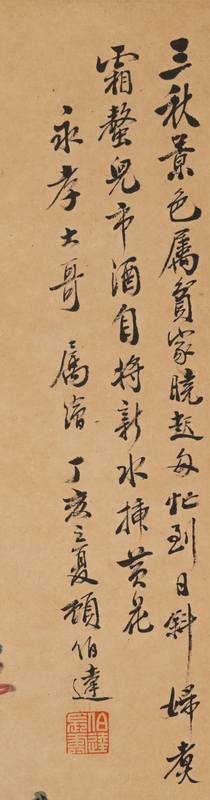 三秋景色属貧家曉起匆忙到日斜婦煑
霜螯兒市酒自將新水插黄花
永孝大哥 属繪 丁亥之夏顧伯達
伯達